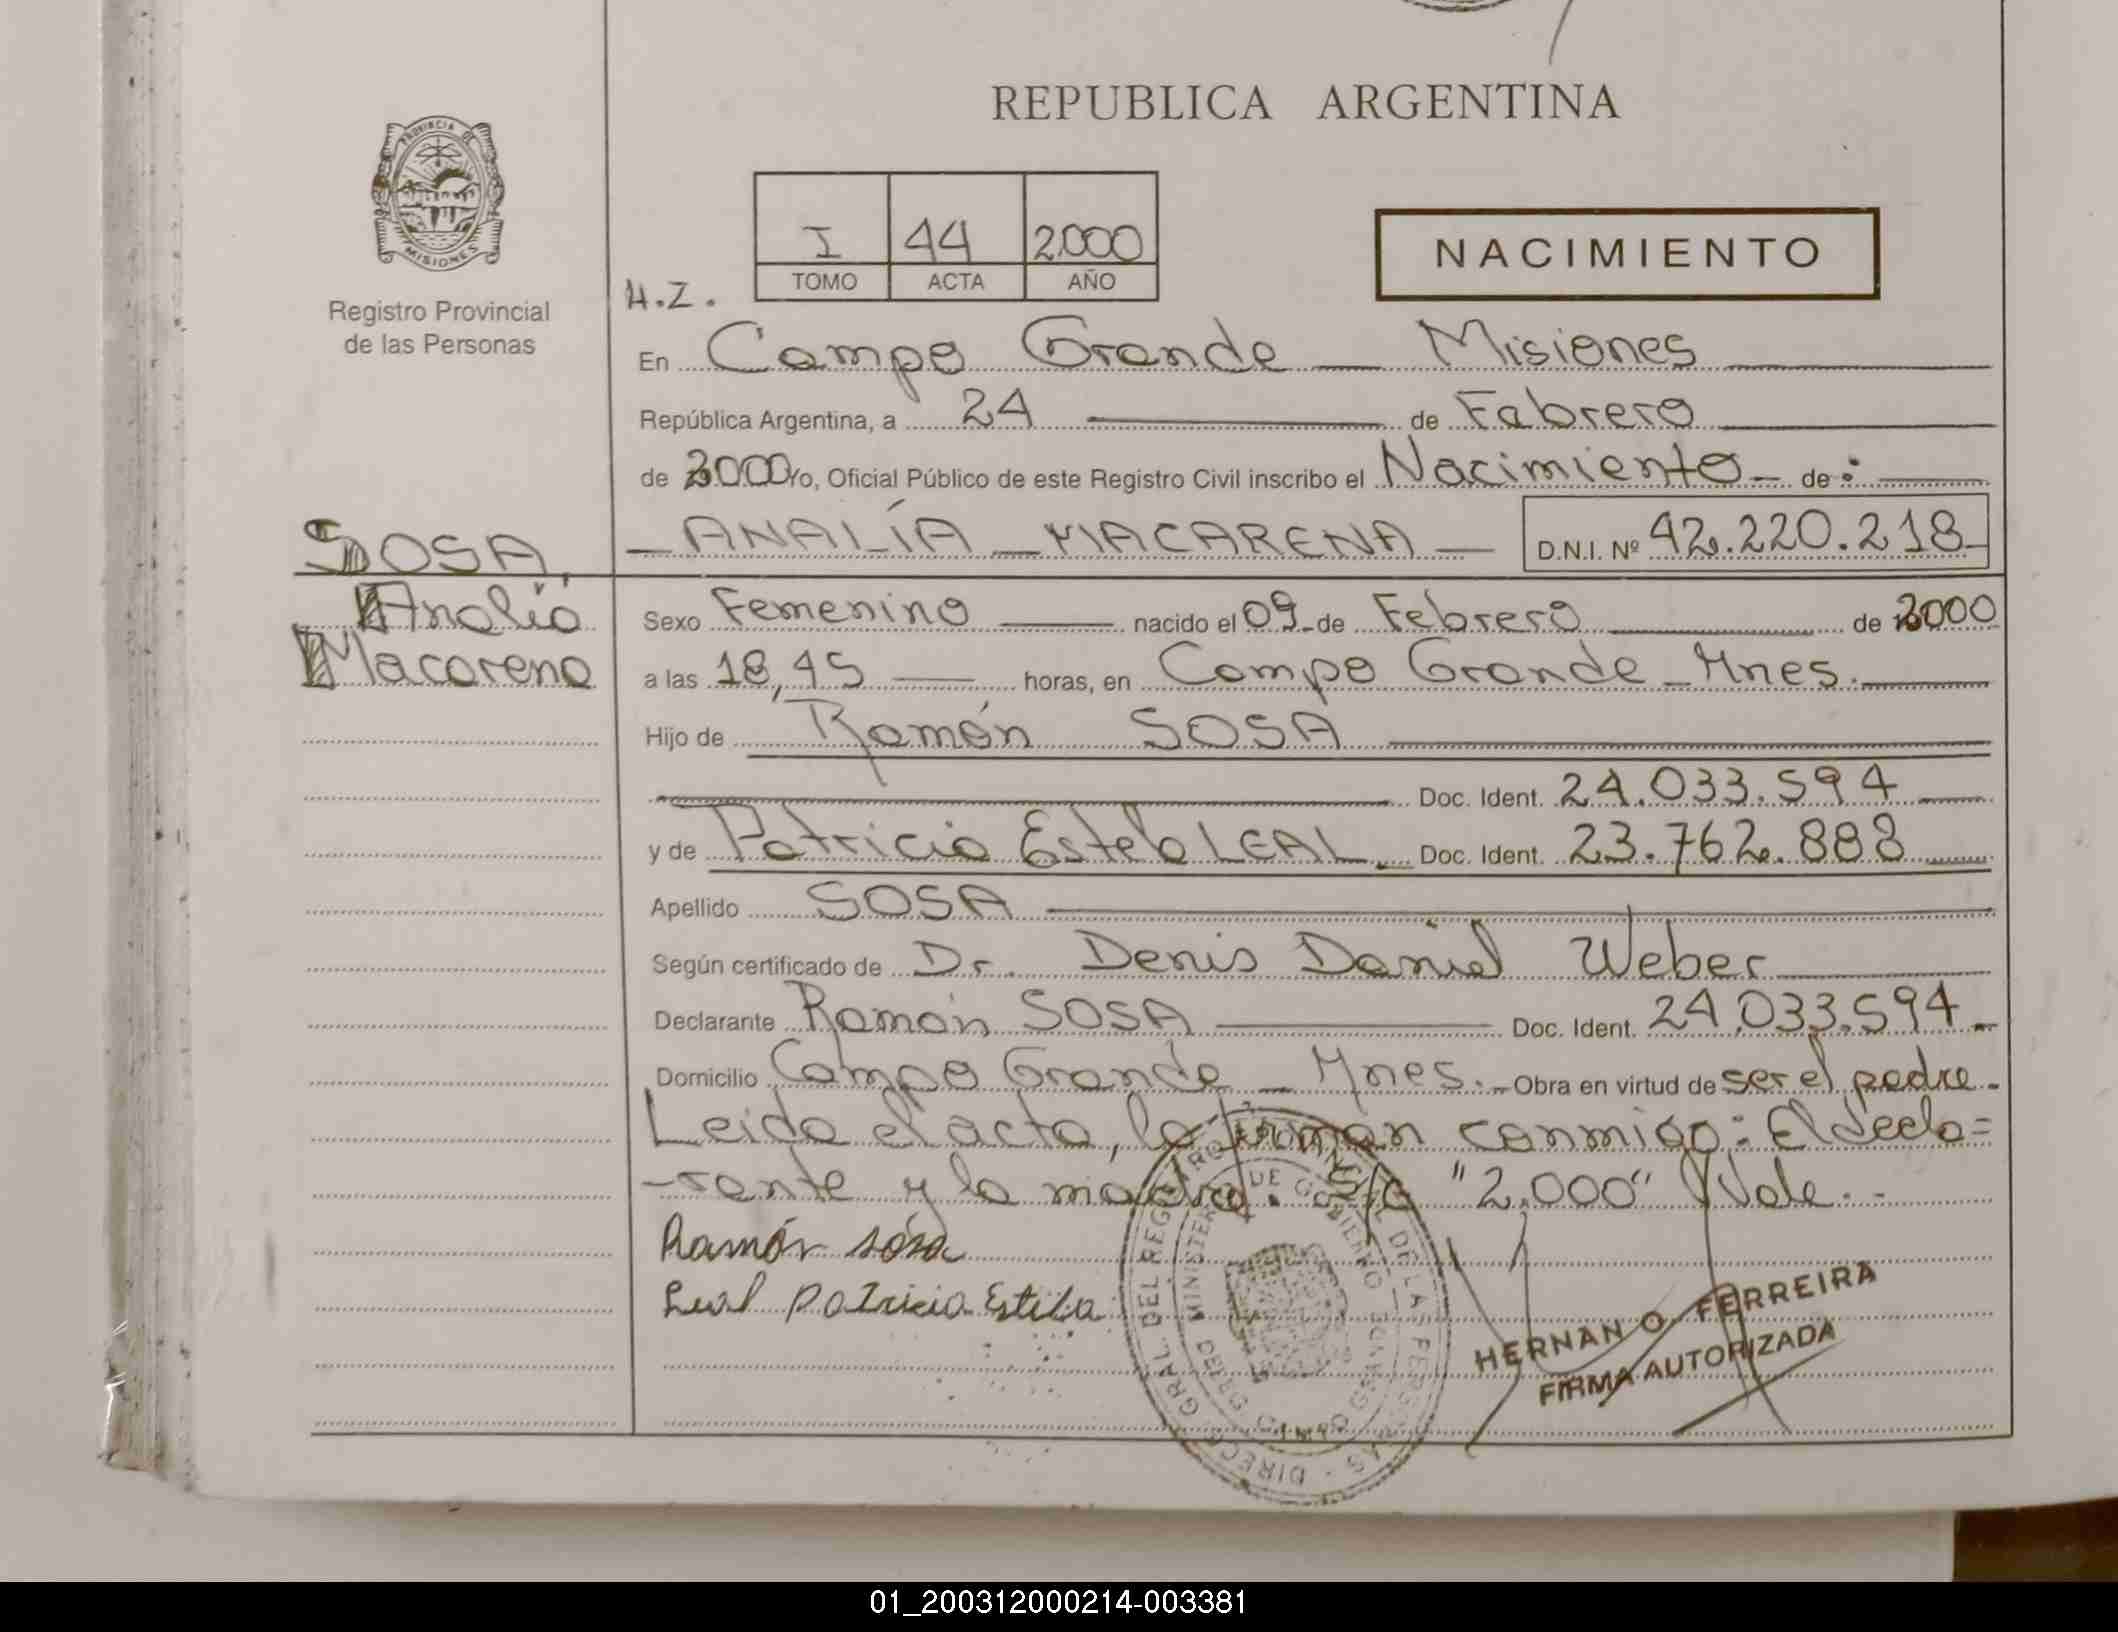 REPUBLICA ARGENTINA
PROVINCIA DE
MISIONES
Registro Provincial
de las Personas
I 44 2000
TOMO ACTA AÑO
NACIMIENTO
H.Z.
En Campo Grande — Misiones
República Argentina, a 24 — de Febrero
de 2000 Yo, Oficial Público de este Registro Civil inscribo el Nacimiento — de :
— ANALÍA — MACARENA — D.N.I. Nº 42.220.218
SOSA,
Analía
Macarena
Sexo Femenino — nacido el 09 de Febrero — de 2000
a las 18,45 — horas, en Campo Grande - Mnes.
Hijo de Ramón SOSA
Doc. Ident. 24.033.594
y de Patricia Estela LEAL. Doc. Ident. 23.762.888
Apellido SOSA
Según certificado de Dr. Denis Daniel Weber
Declarante Ramón SOSA — Doc. Ident. 24.033.594
Domicilio Campo Grande - Mnes. - Obra en virtud de ser el padre.
Leida el acta, la firman conmigo: El decla=
-rante y la madre. S/C "2.000" Vale.-
Ramón sósa
Leal Patricia Estela
DIREC. GRAL. DEL REGISTRO PROVINCIAL DE LAS PERSONAS
MINISTERIO DE GOBIERNO
HERNAN O. FERREIRA
FIRMA AUTORIZADA
01_200312000214-003381